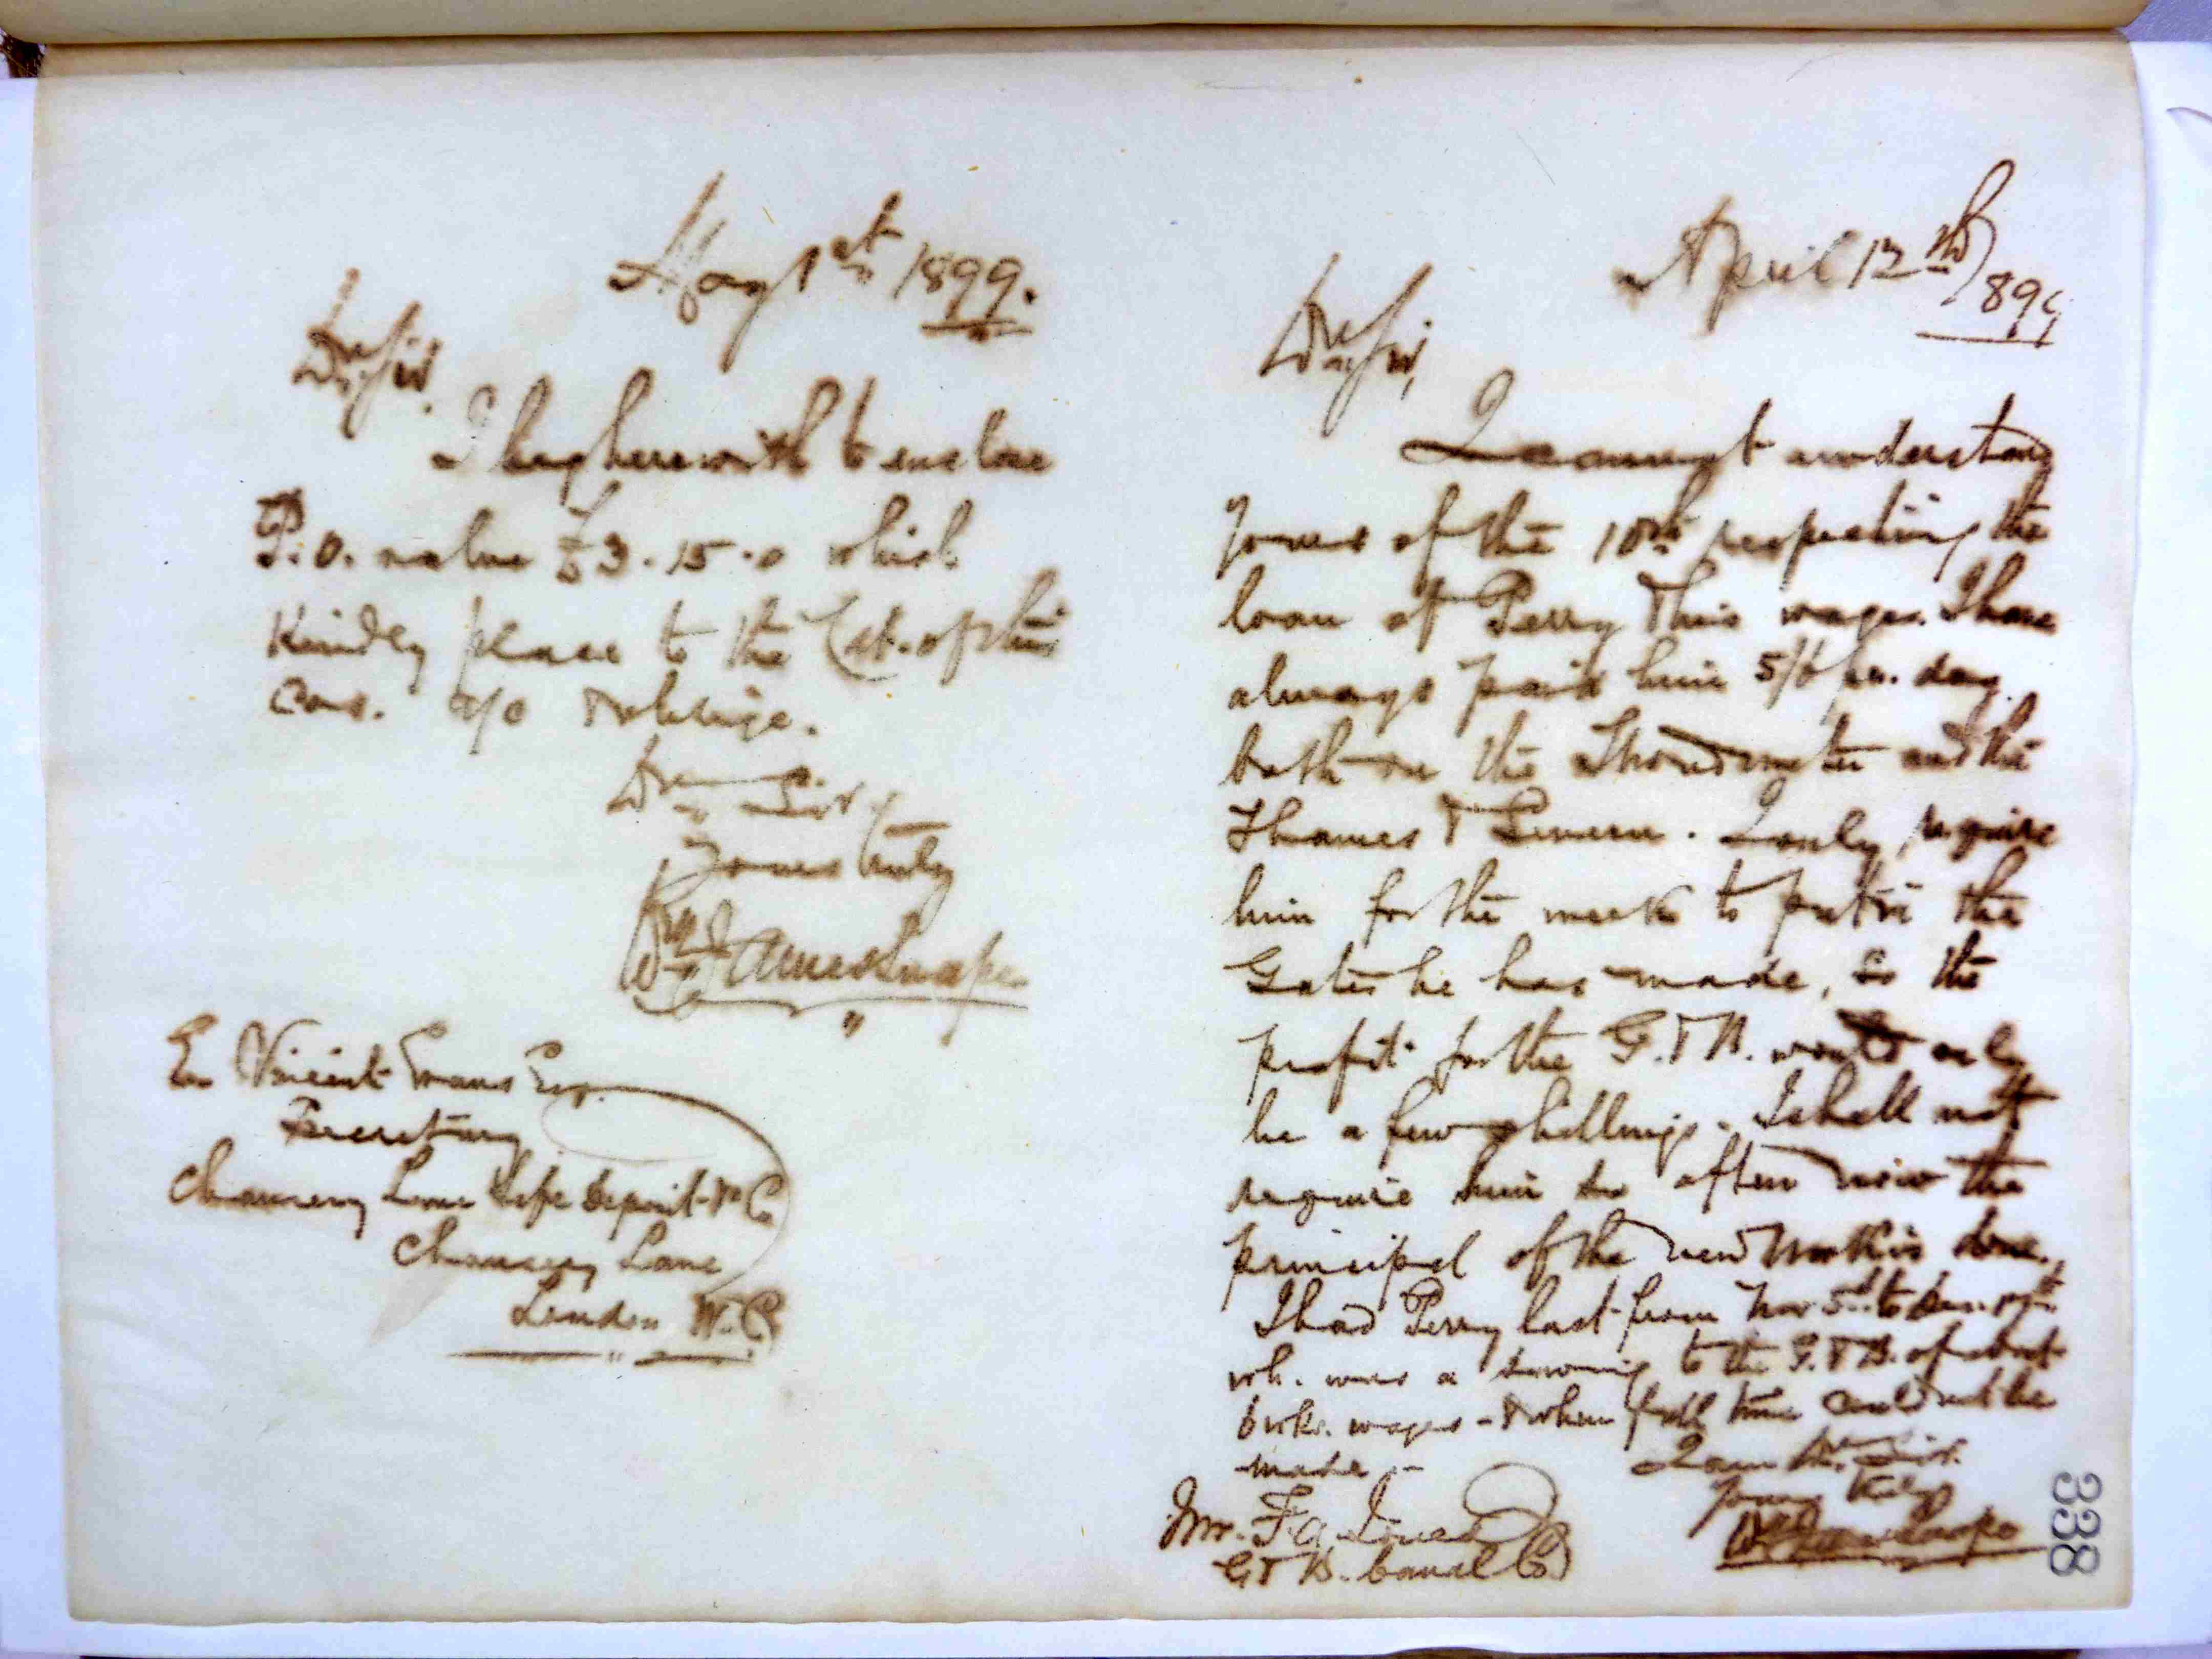 May 1st 1899.
Dr. Sir,
I beg herewith to enclose
P.O. value £3.15.0 which
kindly place to the Cdt. of this
Cos. a/c & oblige.
Dr. Sir
Yours truly
Wm. J. Snape
E. Vincent Evans Esq.
Secretary
Chancery Lane Safe Deposit & Co.
Chancery Lane
London W.C.
April 12th 1899
Dear Sir,
I cannot understand
yours of the 10th respecting the
loan of Perry & his wages. I have
always paid him 5/6 per. day
both on the Stroudwater and the
Thames & Severn. I only require
him for the week to put in the
Gates he has made, so the
profit for the G. & B. would only
be a few shillings. I shall not
require him so often now the
principal of the new work is done.
I had Perry last from Nov 5th to Dec. 17th
wh. was a saving to the G. & B. of about
6 wks. wages - & when full time could not be
made -
I am Dr. Sir.
yours truly
Wm. J. Snape
Mr. F. A. Jones
G & B. Canal Co
338